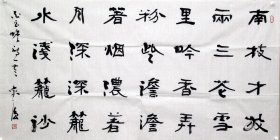 南枝才放
兩三花雪
里吟香弄
粉些澹澹
著烟濃著
月深深籠
水淺籠沙